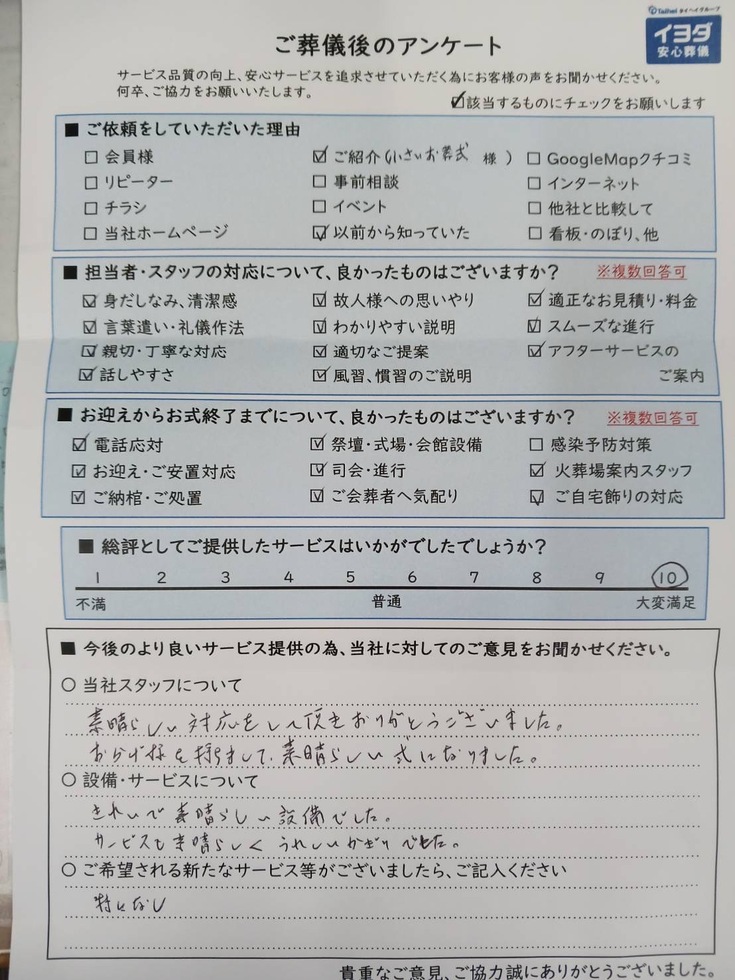 Taihei タイヘイグループ
イヨダ
安心葬儀
ご葬儀後のアンケート
サービス品質の向上、安心サービスを追求させていただく為にお客様の声をお聞かせください。
何卒、ご協力をお願いいたします。
☑該当するものにチェックをお願いします
■ ご依頼をしていただいた理由
☐ 会員様 ☑ ご紹介(小さいお葬式 様 ) ☐ GoogleMapクチコミ
☐ リピーター ☐ 事前相談 ☐ インターネット
☐ チラシ ☐ イベント ☐ 他社と比較して
☐ 当社ホームページ ☑ 以前から知っていた ☐ 看板・のぼり、他
■ 担当者・スタッフの対応について、良かったものはございますか? ※複数回答可
☑ 身だしなみ、清潔感 ☑ 故人様への思いやり ☑ 適正なお見積り・料金
☑ 言葉遣い・礼儀作法 ☑ わかりやすい説明 ☑ スムーズな進行
☑ 親切・丁寧な対応 ☑ 適切なご提案 ☑ アフターサービスの
☑ 話しやすさ ☑ 風習、慣習のご説明 ご案内
■ お迎えからお式終了までについて、良かったものはございますか? ※複数回答可
☑ 電話応対 ☑ 祭壇・式場・会館設備 ☐ 感染予防対策
☑ お迎え・ご安置対応 ☑ 司会・進行 ☑ 火葬場案内スタッフ
☑ ご納棺・ご処置 ☑ ご会葬者へ気配り ☑ ご自宅飾りの対応
■ 総評としてご提供したサービスはいかがでしたでしょうか?
1 2 3 4 5 6 7 8 9 10
不満 普通 大変満足
■ 今後のより良いサービス提供の為、当社に対してのご意見をお聞かせください。
○ 当社スタッフについて
素晴らしい対応をして頂きありがとうございました。
おかげ様を持ちまして、素晴らしい式になりました。
○ 設備・サービスについて
きれいで素晴らしい設備でした。
サービスも素晴らしく うれしいかぎりでした。
○ ご希望される新たなサービス等がございましたら、ご記入ください
特になし
貴重なご意見、ご協力誠にありがとうございました。